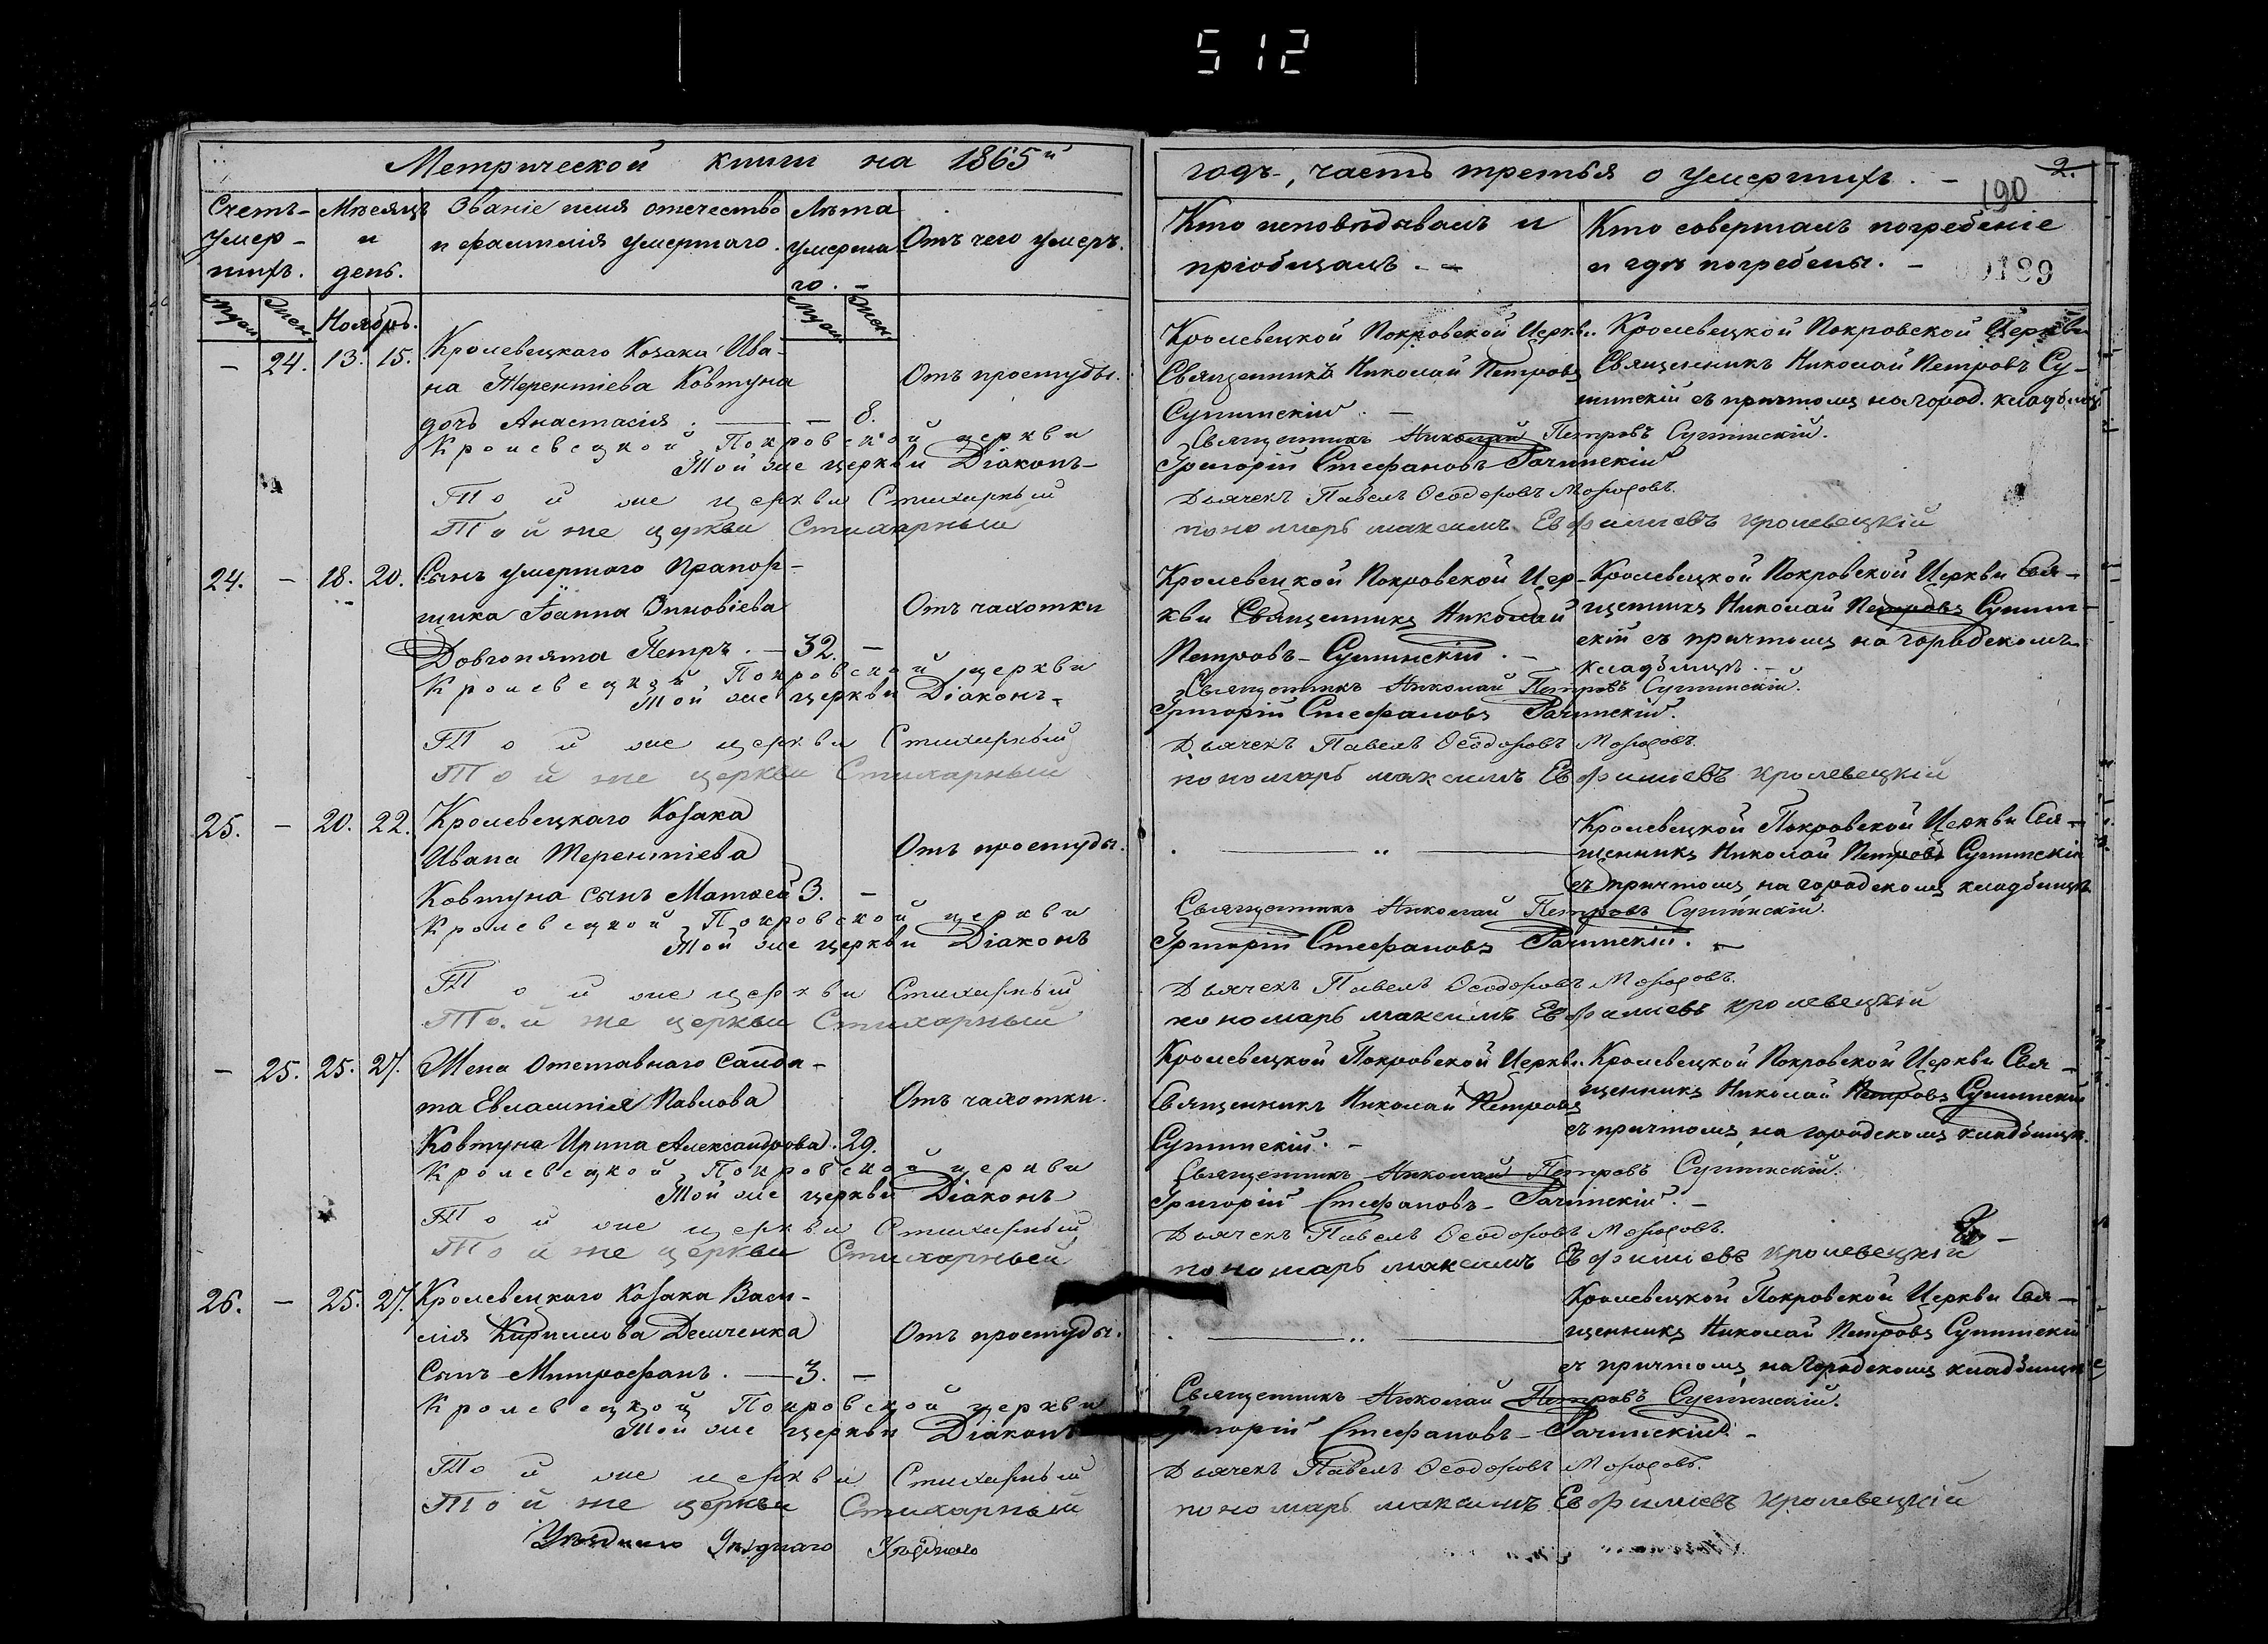 512
Метрической книги на 1865й
Счетъ умершихъ.
Мѣсяцъ и день.
Званіе имя отечество и фамилія умершаго.
Лѣта умершаго.
Отъ чего умеръ.
Муж. Жен. Ноябрь. Муж. Жен.
— 24. 13. 15. Кролевецкаго Козака Ива-
на Терентіева Ковтуна
Отъ простуды.
дочь Анастасія. — — 8.
Кролевецкой Покровской церкви
Той же церкви Діаконъ
Той же церкви Стихарный
Той же церкви Стихарный
24. — 18. 20. Сынъ умершаго Прапор-
щика Іоанна Зиновіева
Отъ чахотки
Довгопята Петръ. — 32. —
Кролевецкой Покровской церкви
Той же церкви Діаконъ
Той же церкви Стихарный
Той же церкви Стихарный
25. — 20. 22. Кролевецкаго Козака
Ивана Терентіева
Отъ простуды.
Ковтуна сынъ Матвей 3. —
Кролевецкой Покровской церкви
Той же церкви Діаконъ
Той же церкви Стихарный
Той же церкви Стихарный
— 25. 25. 27. Жена Отставного Салда-
та Евлампія Павлова
Отъ чахотки.
Ковтуна Ирина Александрова. 29.
Кролевецкой Покровской церкви
Той же церкви Діаконъ
Той же церкви Стихарный
Той же церкви Стихарный
26. — 25. 27. Кролевецкаго Козака Васи-
лія Кириллова Демченка
Отъ простуды.
Сынъ Митрофанъ. — 3. —
Кролевецкой Покровской церкви
Той же церкви Діаконъ
Той же церкви Стихарный
Той же церкви Стихарный
годъ, часть третья о умершихъ. —
2.
190
Кто исповѣдывалъ и
пріобщалъ. —
Кто совершалъ погребеніе
и гдѣ погребены. —
189
Кролевецкой Покровской Церкви
Священникъ Николай Петровъ
Сушинскій. —
Кролевецкой Покровской Церкви
Священникъ Николай Петровъ Су-
шинскій съ причтомъ на город. кладбищѣ
Священникъ Николай Петровъ Сушинскій.
Григорій Стефановъ Рачинскій
Дьячекъ Павелъ Ѳеодоровъ Морозовъ.
пономарь максимъ Евфиміевъ кролевецкій
Кролевецкой Покровской Цер-
кви Священникъ Николай
Петровъ Сушинскій. —
Кролевецкой Покровской Церкви Свя-
щенникъ Николай Петровъ Сушин-
скій съ причтомъ на городскомъ
кладбищѣ. —
Священникъ Николай Петровъ Сушинскій.
Григорій Стефановъ Рачинскій.
Дьячекъ Павелъ Ѳеодоровъ Морозовъ.
пономарь максимъ Евфиміевъ кролевецкій
Кролевецкой Покровской Церкви Свя-
щенникъ Николай Петровъ Сушинскій
съ причтомъ на городскомъ кладбищѣ
Священникъ Николай Петровъ Сушинскій.
Григорій Стефановъ Рачинскій. —
Дьячекъ Павелъ Ѳеодоровъ Морозовъ.
пономарь максимъ Евфиміевъ кролевецкій
Кролевецкой Покровской Церкви
Священникъ Николай Петровъ
Сушинскій. —
Кролевецкой Покровской Церкви Свя-
щенникъ Николай Петровъ Сушинскій
съ причтомъ на городскомъ кладбищѣ.
Священникъ Николай Петровъ Сушинскій.
Григорій Стефановъ Рачинскій. —
Дьячекъ Павелъ Ѳеодоровъ Морозовъ.
пономарь максимъ Евфиміевъ кролевецкій
Кролевецкой Покровской Церкви Свя-
щенникъ Николай Петровъ Сушинскій
съ причтомъ на городскомъ кладбищѣ
Священникъ Николай Петровъ Сушинскій.
Григорій Стефановъ Рачинскій. —
Дьячекъ Павелъ Ѳеодоровъ Морозовъ.
пономарь максимъ Евфиміевъ кролевецкій